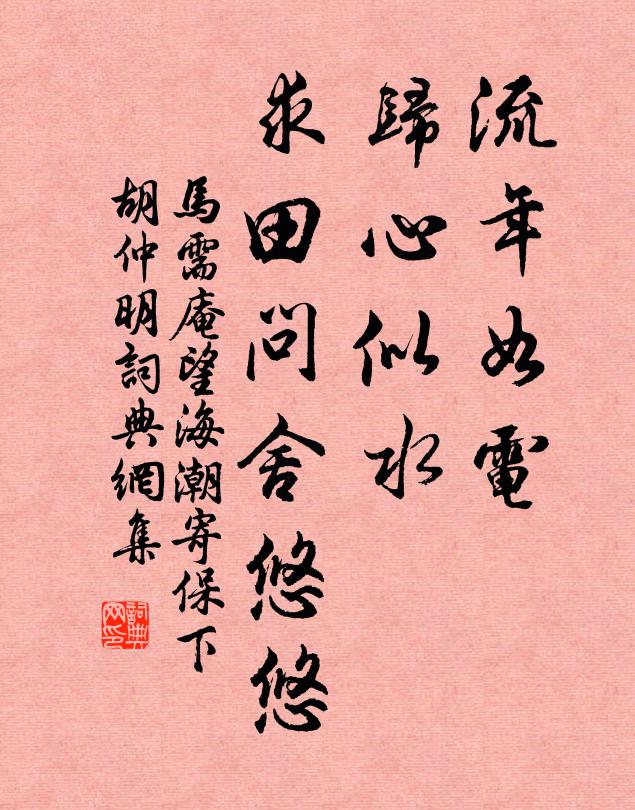 流年如電
歸心似水
求田問舍悠悠
馬需庵望海潮寄保下
胡仲明詞典網集
詞典网印